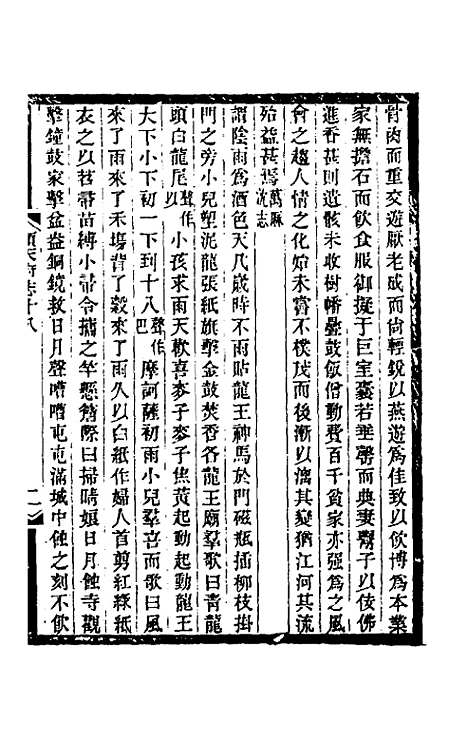 骨肉而重交遊厭老成而尙輕銳以燕遊爲佳致以飲博爲本業
家無擔石而飲食服御擬于巨室囊若垂罄而典妻鬻子以佞佛
進香甚則遺骸未收樹幡疊鼓飯僧動費百千貧家亦强爲之風
會之趨人情之化始未嘗不樸茂而後漸以漓其變猶江河其流
殆益甚焉萬厤沈志
謂陰雨爲酒色天凡歲時不雨貼龍王神馬於門磁瓶插柳枝掛
門之旁小兒塑泥龍張紙旗擊金鼓焚香各龍王廟羣歌曰靑龍
頭白龍尾聲作以小孩求雨天歡喜麥子麥子焦黃起動起動龍王
大下小下初一下到十八聲作巴摩訶薩初雨小兒羣喜而歌曰風
來了雨來了禾塲背了穀來了雨久以白紙作婦人首剪紅綠紙
衣之以苕帚苗縛小帚令攜之竿懸簷際曰掃晴娘日月蝕寺觀
擊鐘鼓家擊盆盎銅鏡救日月聲嘈嘈屯屯滿城中蝕之刻不飲
順天府志十八